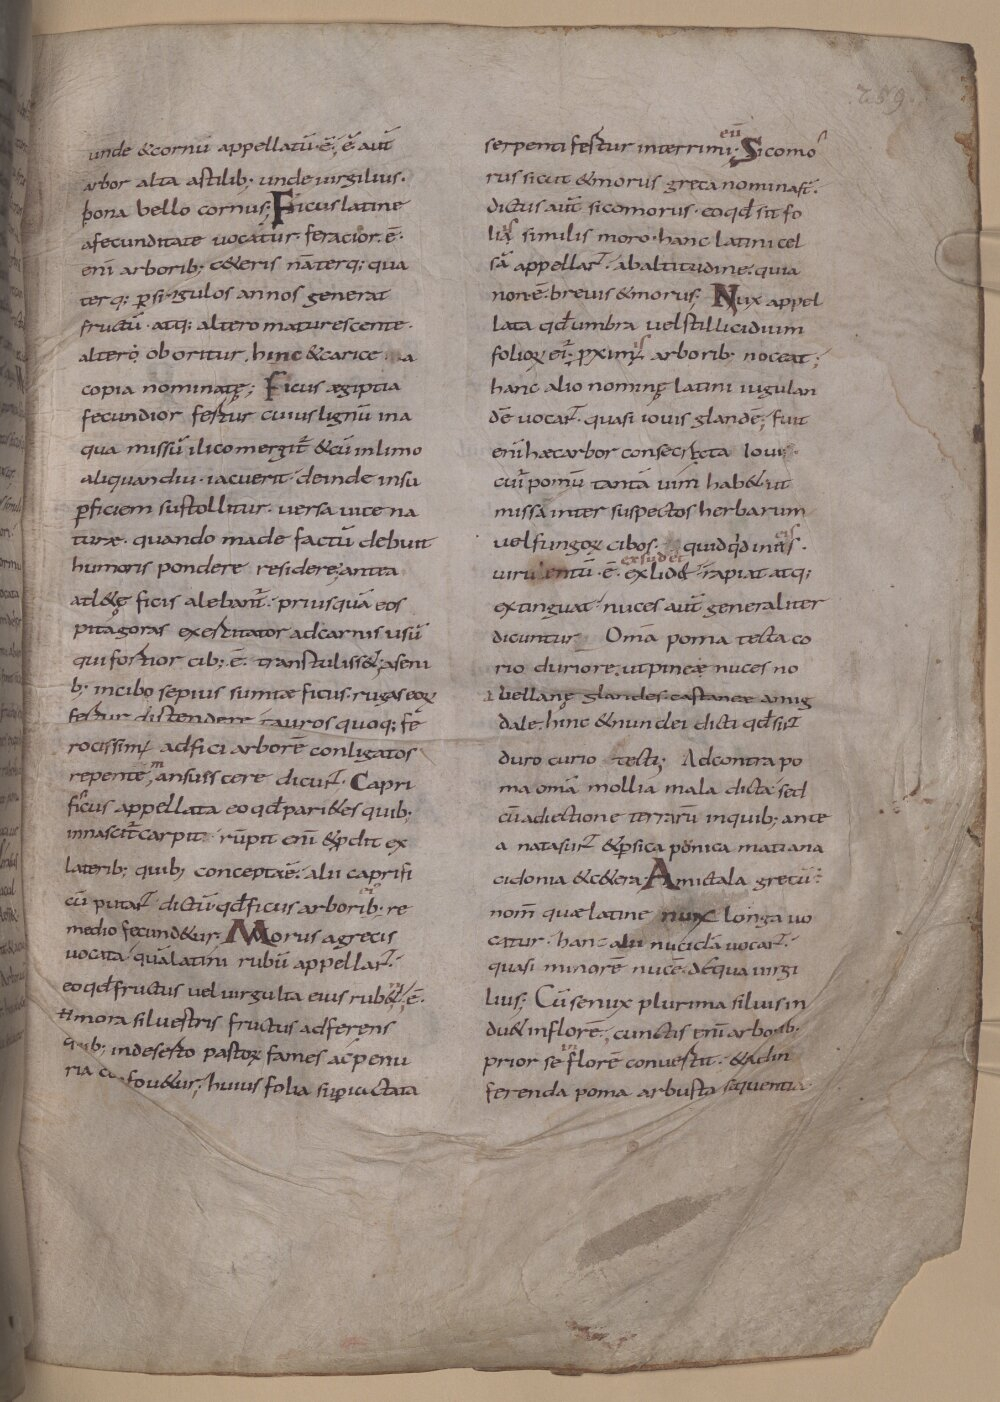 259.
unde &cornū appellatū·ē·; ē aut̄
arbor alta astilib; unde uirgilius·
bona bello cornus; Ficus latine
a fecunditate uocatur· feracior· ē·
enī arborib; c&eris nā terq; qua
terq; ꝑ singulos annos generat
fructū· atq; altero maturescente·
alter oboritur, hinc &caricę a
copia nominatę; Ficus ægiptia
fecundior fertur cuius lignū in a
qua missū ilico mergit̄ &cū in limo
aliquandiu· iacuerit· deinde in su
ꝑficiem sustollitur· uersa uice na
turæ· quando made factū debuit
humoris pondere residere; antea
atl&ę ficis alebant̄· priusquā eos
pitagoras exercitator ad carnis usū
qui fortior cib; ē· transtuliss&; a seni
b; in cibo sepius sumtæ ficus· rugas eoꝝ
fertur distendere tauros quoq; fe
rocissimos ad fici arborē conligatos
repente mansuescere dicunt· Capri
ficus appellata eo qđ pari&es quib;
innascit̄ carpit· rūpit enī &ꝓdit ex
laterib; quib; concepta ē· alii caprifi
cū putant dictū· qđ ficus arbor ei· re
medio fecund&ur; Morus a grecis
uocata· quā latini rubū appellant·
eo qđ fructus uel uirgulta eius rub&· ē·
H mora siluestris fructus adferens
quib; in deserto pastoꝝ fames ac penu
ria confou&ur; huius folia supiactata
serpenti fertur interrimi eū· Sicomo
rus sicut &morus greca nomina sī·
dictus aut̄ sicomorus· eo qđ sit fo
liis similis moro· hanc latini cel
sā appellant· ab altitudine· quia
non ē· breuis &morus; Nux appel
lata qđ umbra uel stillicidium
folioꝝ ei; ꝓximis arborib; noceat;
hanc alio nomine latini iugulan
dē uocant· quasi iouis glandē; fuit
enī hæc arbor consecrata Ioui·
cui; pomū tantā uim hab& ut
missa inter suspectos herbarum
uel fungoꝝ cibos· quidqđ in eis·
uirulentū· ē· exsudet exlid& rapiat atq;
extinguat· nuces aut̄ generaliter
dicuntur Omā poma tecta co
rio duriore· ut pineæ nuces no
bellanę glandes castaneæ amig
dale· hinc &nunclei dicti qđ sint
duro curio tecti; Ad contra po
ma omā mollia mala dicta sed
cū adiectione terrarū in quib; ante
a nata sunt &ꝑsica ponica matiana
cidonia &c&era; Amictala gretū·
nom̄ quæ latine nux longa uo
catur· hanc alii nuciclā uocant·
quasi minorē nucē· de qua uirgi
lius; Cū se nux plurima siluis in
du& in florē; cunctis enī arborib;
prior se in florē conuestit· &ad in
ferenda poma arbusta sequentia·